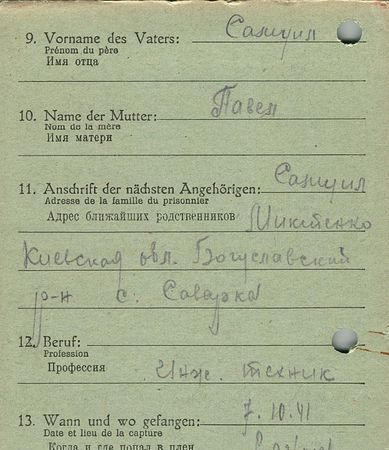 9. Vorname des Vaters: Самуил
Prénom du père
Имя отца
10. Name der Mutter: Павел
Nom de la mère
Имя матери
11. Anschrift der nächsten Angehörigen: Самуил
Adresse de la famille du prisonnier
Адрес ближайших родственников Микитенко
Киевская обл. Богуславский
р-н с. Саварка
12. Beruf:
Profession
Профессия Инж. техник
13. Wann und wo gefangen: 7.10.41
Date et lieu de la capture
Когда и где попал в плен